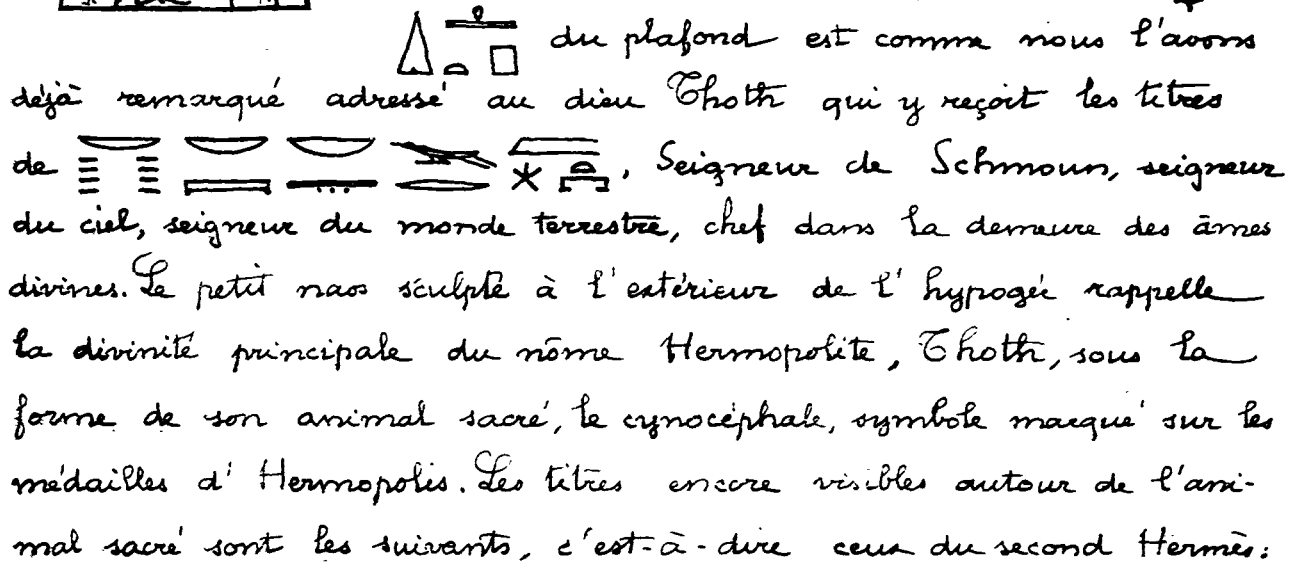 du plafond est comme nous l'avons
déjà remarqué adressé au dieu Thoth qui y reçoit les titres
de , Seigneur de Schmoun, seigneur
du ciel, seigneur du monde terrestre, chef dans la demeure des âmes
divines. Le petit naos sculpté à l'extérieur de l'hypogée rappelle
la divinité principale du nôme Hermopolite, Thoth, sous la
forme de son animal sacré, le cynocéphale, symbole marqué sur les
médailles d'Hermopolis. Les titres encore visibles autour de l'ani-
mal sacré sont les suivants, c'est-à-dire ceux du second Hermès: